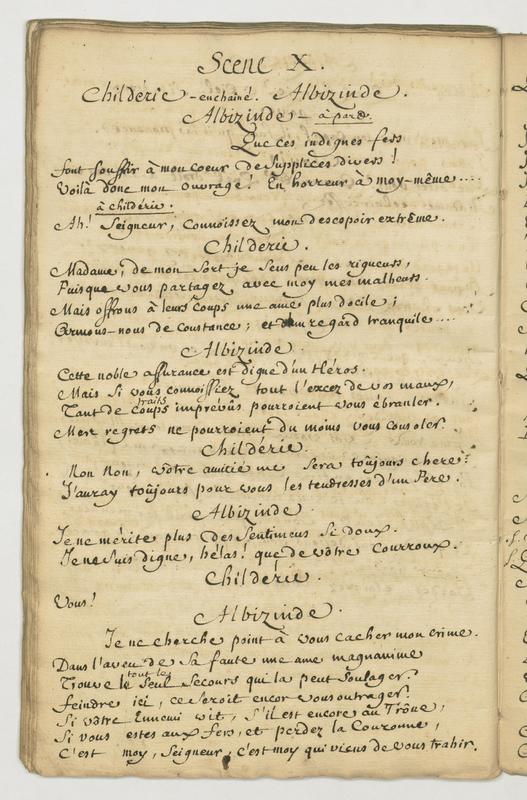 Scene X.
Childéric - enchaîné. Albizinde.
Albizinde - à part.
Que ces indignes fers
font souffrir à mon coeur de supplices divers!
Voilà donc mon ouvrage! En horreur à moy-même....
à Childéric.
Ah! Seigneur, connoissez mon desespoir extrême.
Childéric.
Madame, de mon sort je sens peu les rigueurs,
Puisque vous partagez avec moy mes malheurs.
Mais offrons à leurs coups une ame plus docile;
Armons-nous de constance; et d'un regard tranquile....
Albizinde.
Cette noble assurance est digne d'un Héros.
Mais si vous connoissiez tout l'excez de vos maux,
traits
Tant de coups imprévûs pourroient vous ébranler.
Mes regrets ne pourroient du moins vous consoler.
Childéric.
Non non, vôtre amitié me sera toûjours chere:
J'auray toûjours pour vous les tendresses d'un Pere.
Albizinde.
Je ne mérite plus des sentimens si doux.
Je ne suis digne, hélas! que de vôtre courroux.
Childéric.
Vous!
Albizinde.
Je ne cherche point à vous cacher mon crime.
Dans l'aveu de sa faute une ame magnanime
tout le
Trouve le seul secours qui la peut soulager.
feindre ici, ce seroit encor vous outrager.
Si vôtre Ennemi vit, s'il est encore au Trône,
Si vous estes aux fers, et perdez la Couronne,
C'est moy, Seigneur, c'est moy qui viens de vous trahir.